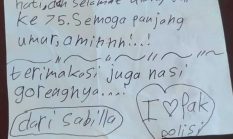 hati, dan selamat
ke 75. Semoga panjang
umur, aminnn!..!
terimakasi juga nasi
gorengnya....!
dari Sabilla
I ♡ Pak
polisi